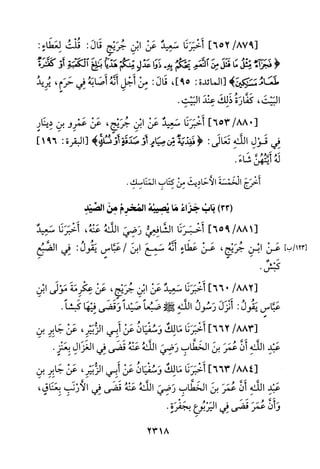 [٦٥٢/٨٧٩] أَخْبَرَنَا سَعِيدٌ عَنْ ابْنِ جُرَيْجٍ قَالَ: قُلْتُ لِعَطَاءٍ:
﴿فَجَزَآءٌ مِّثْلُ مَا قَتَلَ مِنَ ٱلنَّعَمِ يَحْكُمُ بِهِۦ ذَوَا عَدْلٍ مِّنكُمْ هَدْيًۢا بَٰلِغَ ٱلْكَعْبَةِ أَوْ كَفَّٰرَةٌ
طَعَامُ مَسَٰكِينَ﴾ [المائدة: ٩٥]، قَالَ: مِنْ أَجْلِ أَنَّهُ أَصَابَهُ فِي حَرَمٍ، يُرِيدُ
البَيْتَ، كَفَّارَةُ ذَلِكَ عِنْدَ البَيْتِ.
[٦٥٣/٨٨٠] أَخْبَرَنَا سَعِيدٌ عَنْ ابْنِ جُرَيْجٍ، عَنْ عَمْرِو بنِ دِينَارٍ
فِي قَوْلِ اللَّهِ تَعَالَى: ﴿فَفِدْيَةٌ مِّن صِيَامٍ أَوْ صَدَقَةٍ أَوْ نُسُكٍ﴾ [البقرة: ١٩٦]
لَهُ أَيَّتُهُنَّ شَاءَ.
أَخْرَجَ الْخَمْسَةَ الأَحَادِيثَ مِنْ كِتَابِ المَنَاسِكِ.
(٢٣) بَابُ جَزَاءِ مَا يُصِيبُهُ المُحْرِمُ مِنَ الصَّيْدِ
[٦٥٩/٨٨١] أَخْبَرَنَا الشَّافِعِيُّ رَضِيَ اللَّهُ عَنْهُ، أَخْبَرَنَا سَعِيدٌ
عَنْ ابْنِ جُرَيْجٍ، عَنْ عَطَاءٍ أَنَّهُ سَمِعَ ابنَ /عَبَّاسٍ يَقُولُ: فِي الضَّبُعِ [١٢٣/ب]
كَبْشٌ.
[٦٦٠/٨٨٢] أَخْبَرَنَا سَعِيدٌ عَنْ ابْنِ جُرَيْجٍ، عَنْ عِكْرِمَةَ مَوْلَى ابْنِ
عَبَّاسٍ يَقُولُ: أَنْزَلَ رَسُولُ اللَّهِ ﷺ ضَبُعاً صَيْداً وَقَضَى فِيْهَا كَبْشاً.
[٦٦٢/٨٨٣] أَخْبَرَنَا مَالِكٌ وَسُفْيَانُ عَنْ أَبِي الزُّبَيْرِ، عَنْ جَابِرِ بنِ
عَبْدِ اللَّهِ أَنَّ عُمَرَ بنَ الخَطَّابِ رَضِيَ اللَّهُ عَنْهُ قَضَى فِي الغَزَالِ بِعَنْزٍ.
[٦٦٣/٨٨٤] أَخْبَرَنَا مَالِكٌ وَسُفْيَانُ عَنْ أَبِي الزُّبَيْرِ، عَنْ جَابِرِ بنِ
عَبْدِ اللَّهِ أَنَّ عُمَرَ بنَ الخَطَّابِ رَضِيَ اللَّهُ عَنْهُ قَضَى فِي الأَرْنَبِ بِعَنَاقٍ،
وَأَنَّ عُمَرَ قَضَى فِي اليَرْبُوعِ بِجَفْرَةٍ.
٢٣١٨